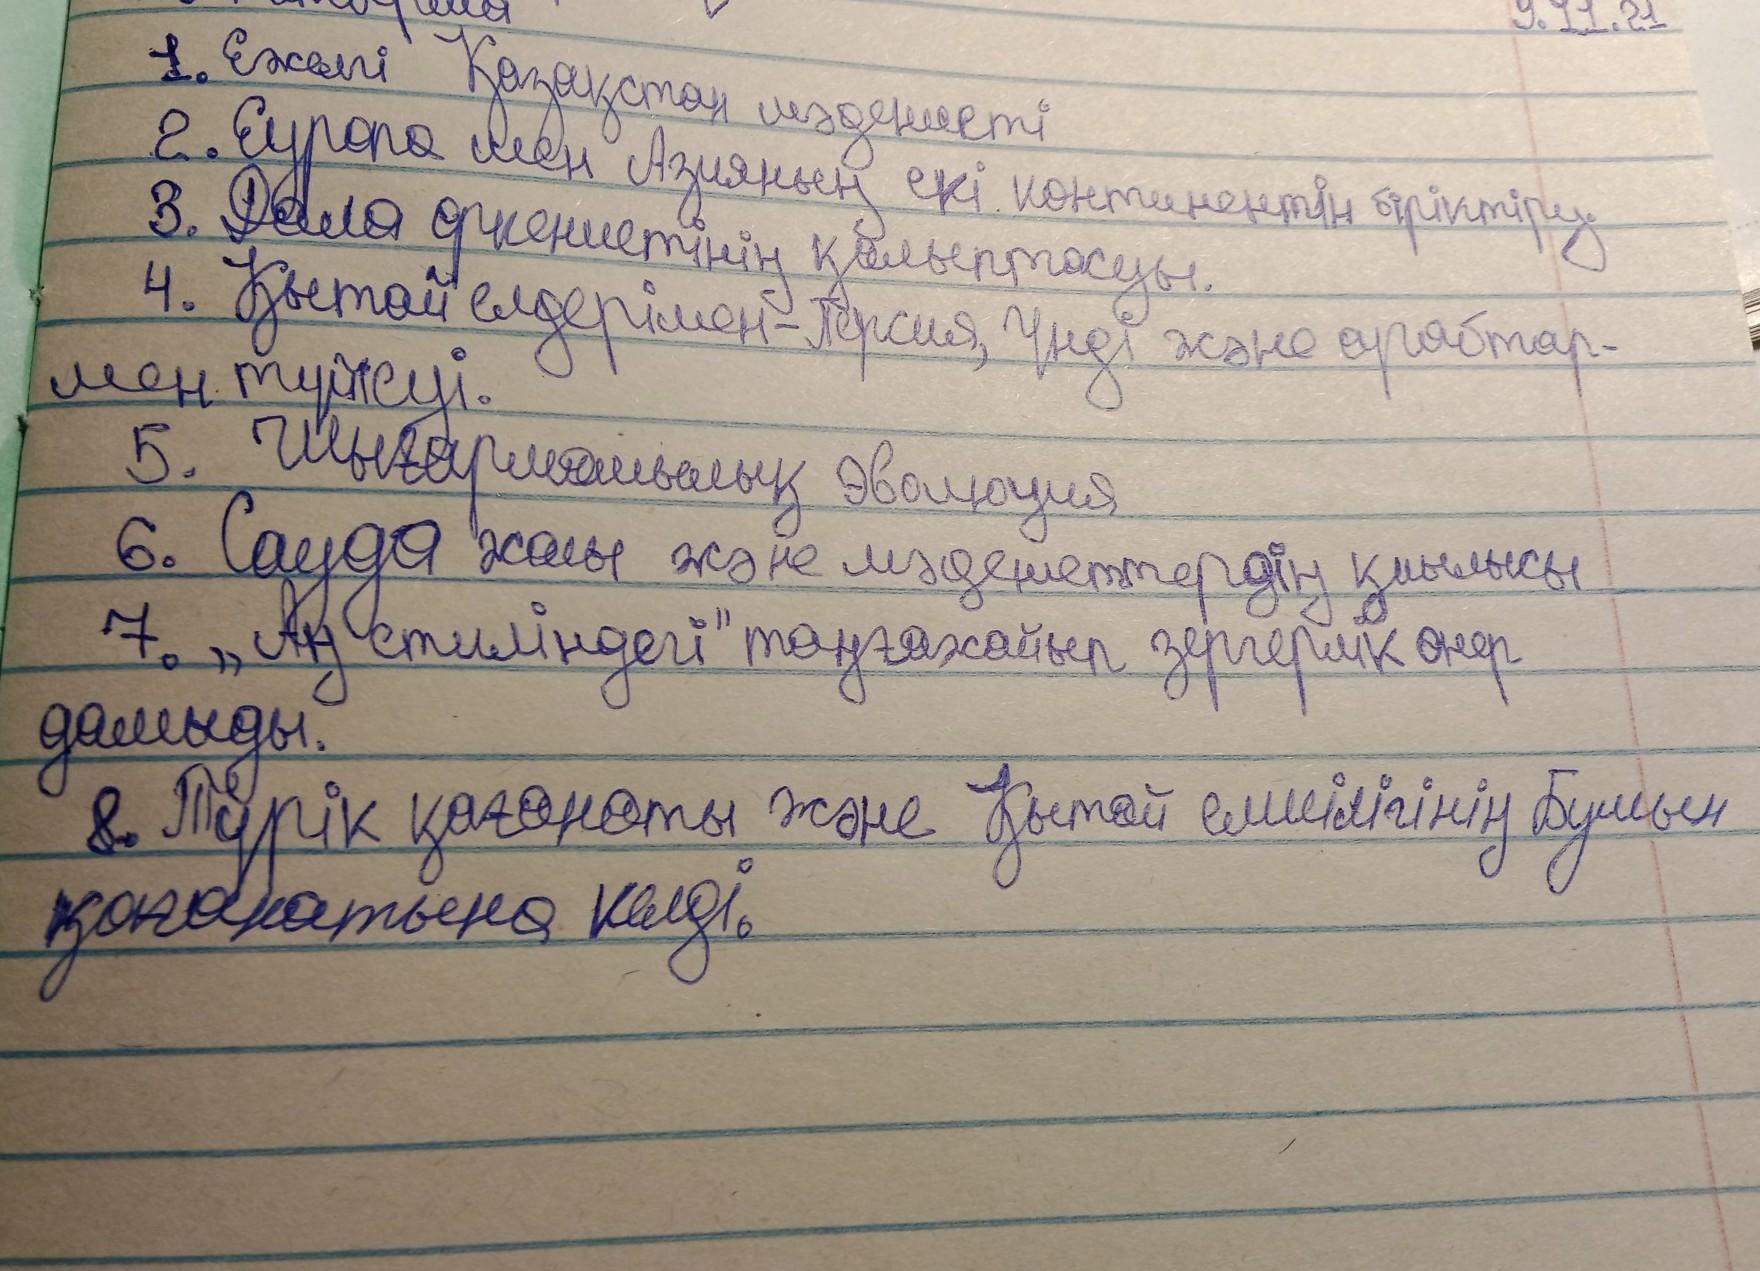 9.11.21
1. Ежелгі Қазақстан мәдениеті
2. Еуропа мен Азияның екі континентін біріктіру.
3. Дала өркениетінің қалыптасуы.
4. Қытай елдерімен-Персия, Үнді және арабтар-
мен түйісуі.
5. Шығармашылық эволюция
6. Сауда жолы және мәдениеттердің қиылысы
7. „Аң стиліндегі" таңғажайып зергерлік өнер
дамыды.
8. Түрік қағанаты және Қытай елшілігінің Бумын
қағанатына келді.